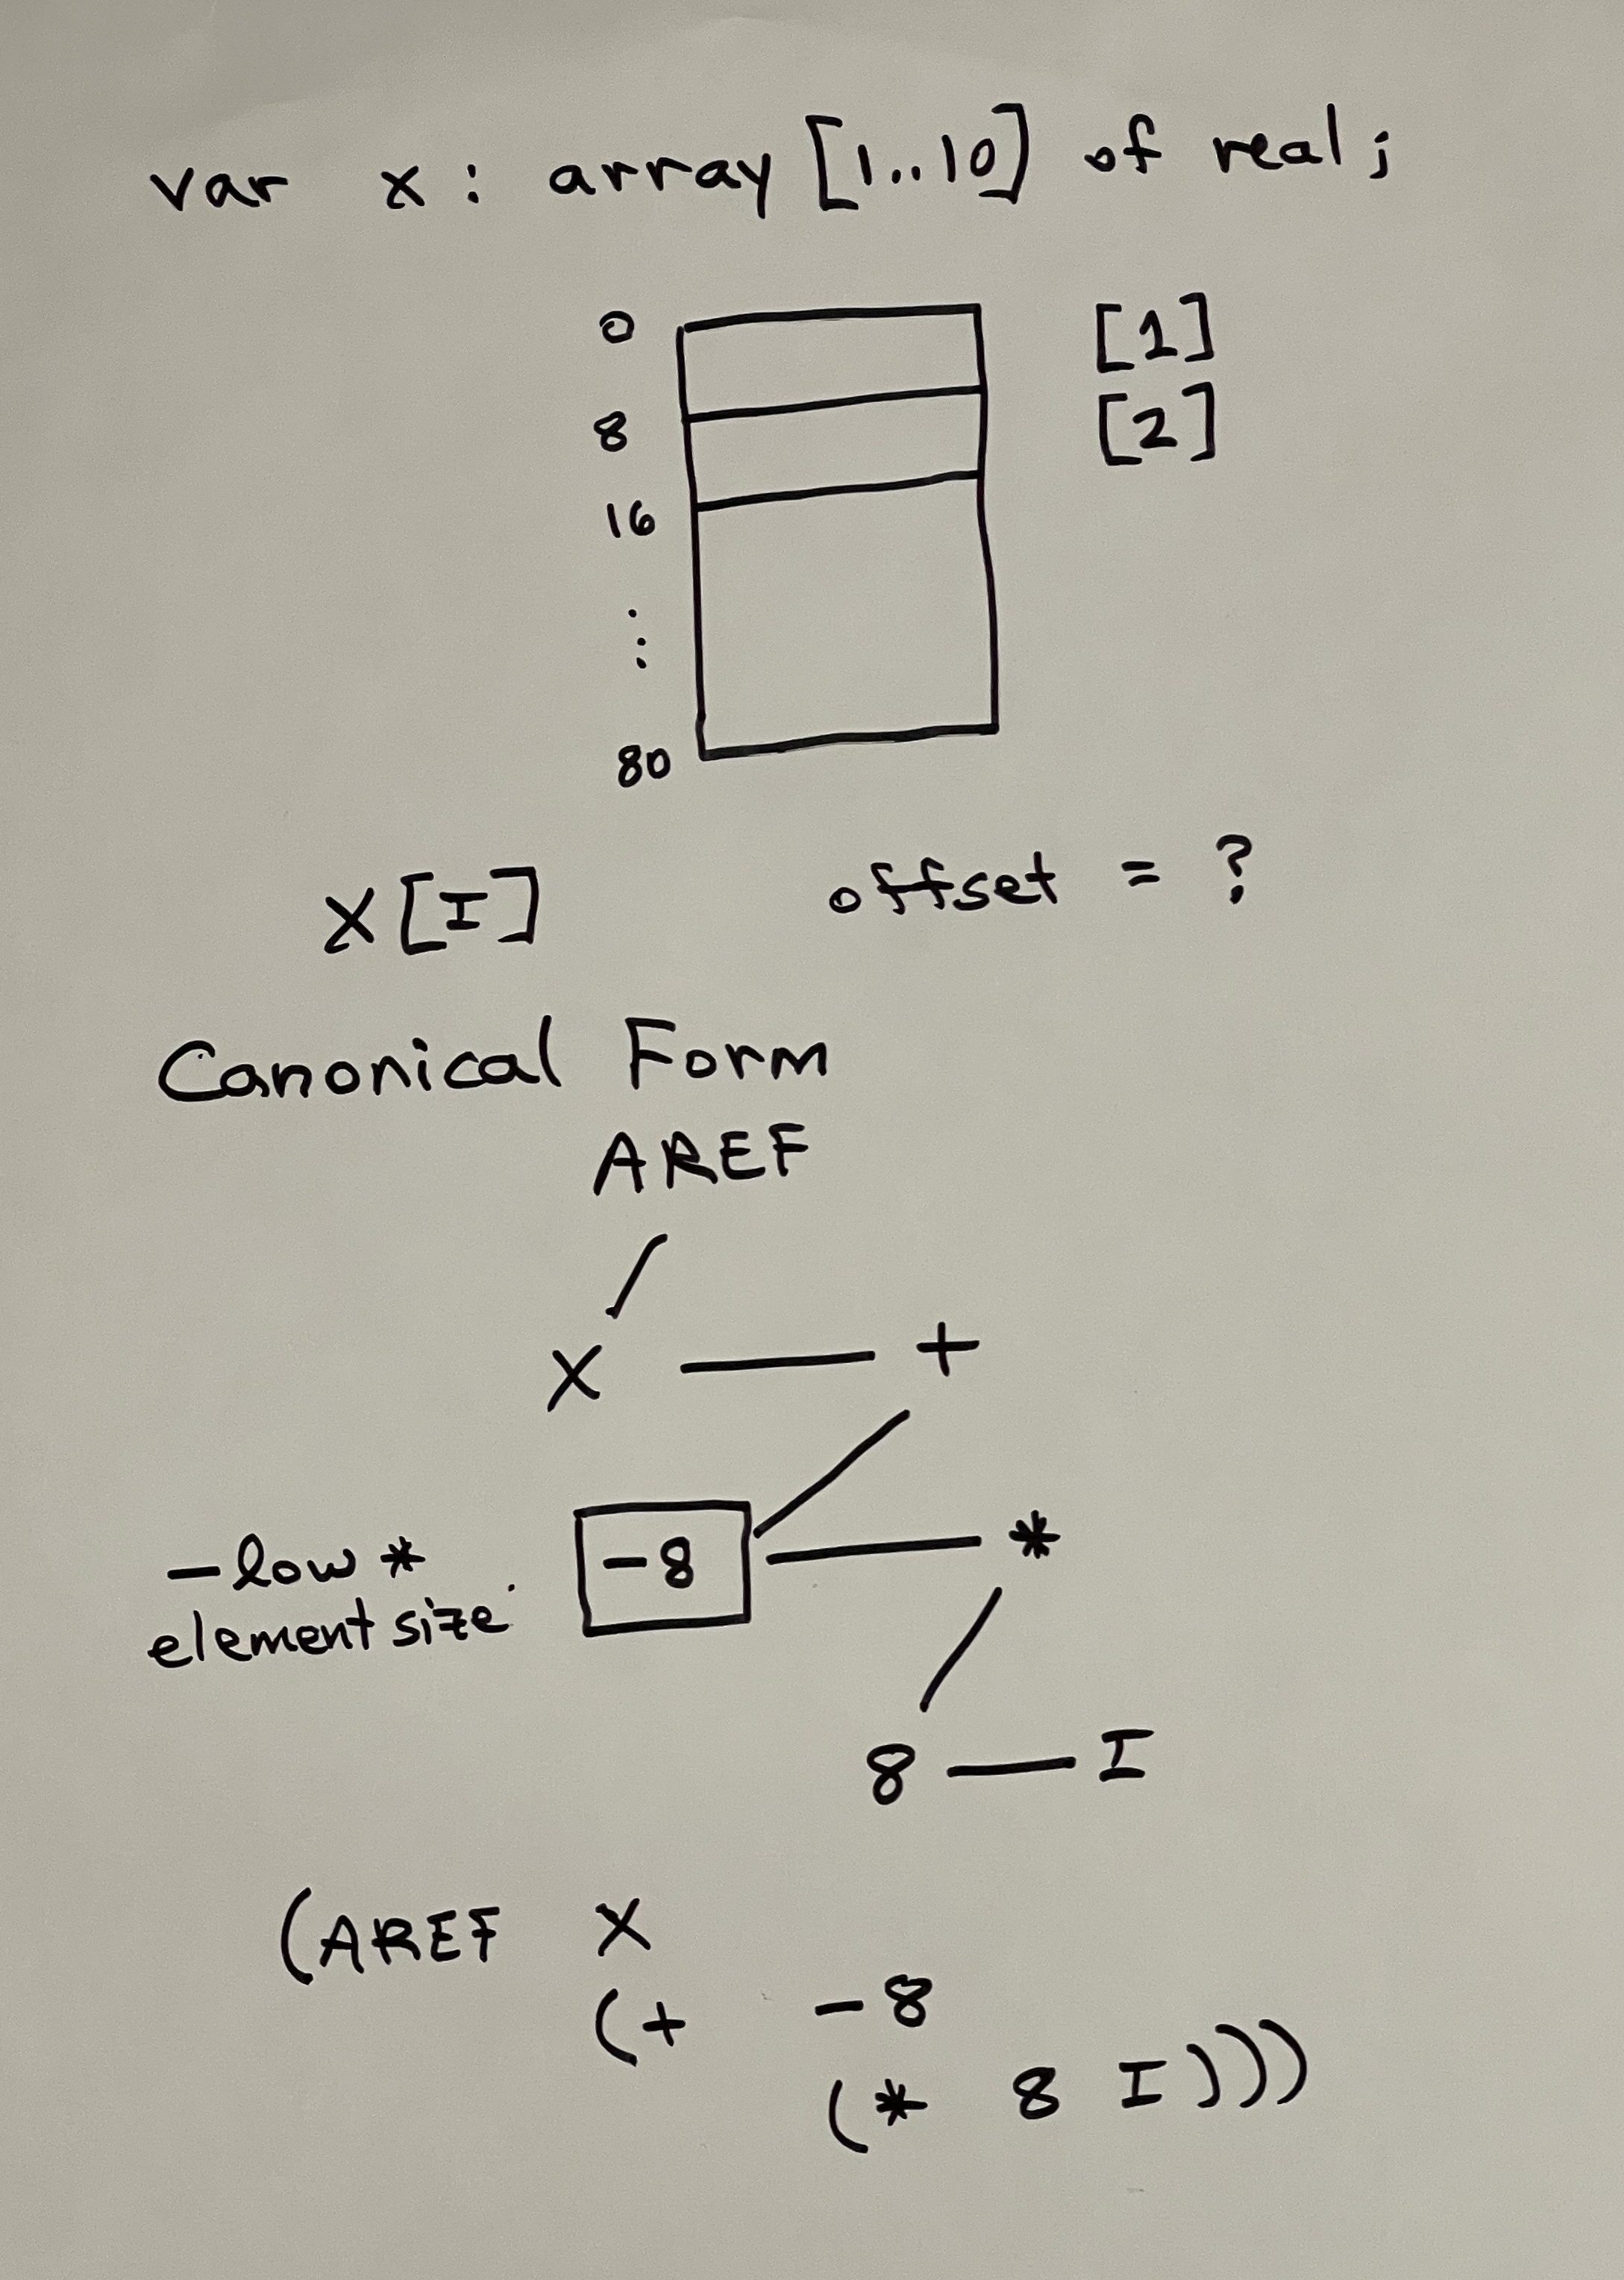 var x : array [1..10] of real ;
0 [1]
8 [2]
16
⋮
80
X[I] offset = ?
Canonical Form
AREF
X +
-8 *
- low *
element size
8 I
(AREF X
(+ -8
(* 8 I)))